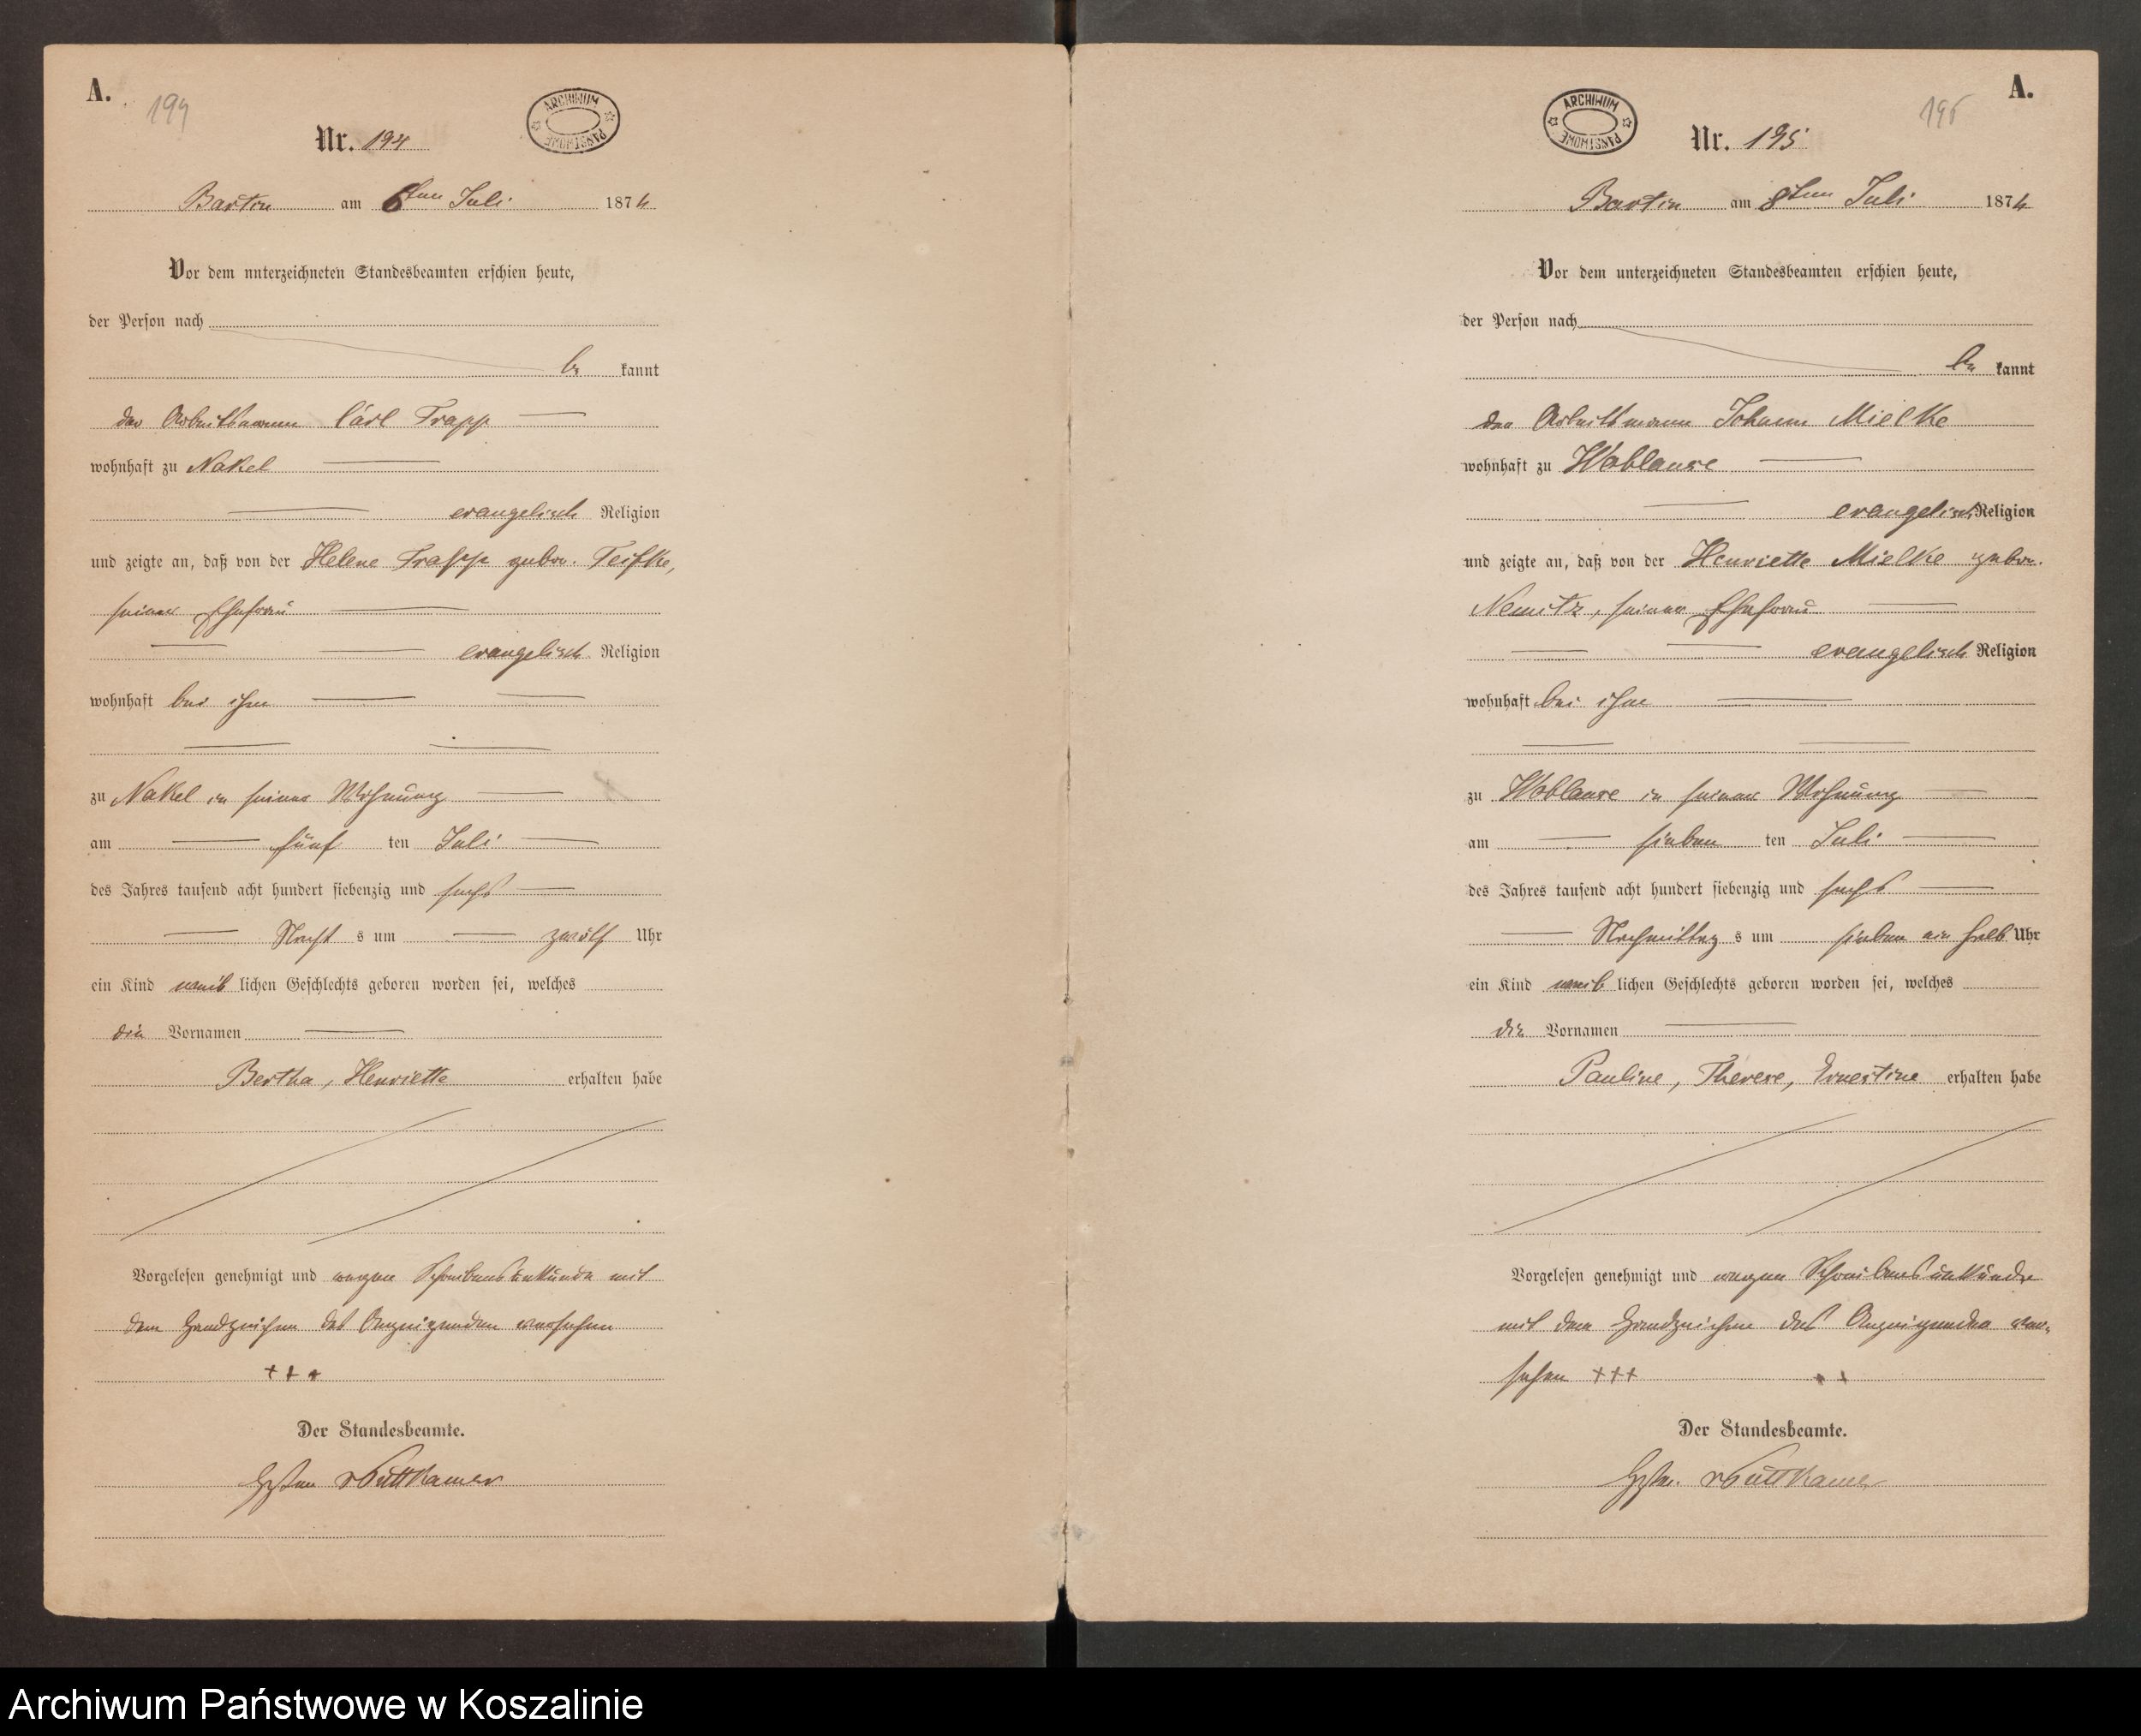 A.
194
Nr. 194
ARCHIWUM PAŃSTWOWE
Bartin am 6ten Juli 1876
Vor dem unterzeichneten Standesbeamten erschien heute,
der Person nach
be kannt
der Arbeitsmann Carl Trapp
wohnhaft zu Nakel
evangelisch Religion
und zeigte an, daß von der Helene Trapp gebor.
seiner Ehefrau
evangelisch Religion
wohnhaft bei ihm
zu Nakel in seiner Wohnung
am fünf ten Juli
des Jahres tausend acht hundert siebenzig und sechs
Nacht s um zwölf Uhr
ein Kind weib lichen Geschlechts geboren worden sei, welches
die Vornamen
Bertha, Henriette erhalten habe
Vorgelesen genehmigt und wegen Schreibensunkunde mit
dem Handzeichen des Anzeigenden versehen
+++
Der Standesbeamte.
v Puttkamer
A.
195
ARCHIWUM PAŃSTWOWE
Nr. 195
Bartin am 8ten Juli 1876
Vor dem unterzeichneten Standesbeamten erschien heute,
der Person nach
be kannt
der Arbeitsmann Johann Mielke
wohnhaft zu Woblanse
evangelisch Religion
und zeigte an, daß von der Henriette Mielke gebor.
Nemitz, seiner Ehefrau
evangelisch Religion
wohnhaft bei ihm
zu Woblanse in seiner Wohnung
am sieben ten Juli
des Jahres tausend acht hundert siebenzig und sechs
Nachmittag s um sieben ein halb Uhr
ein Kind weib lichen Geschlechts geboren worden sei, welches
die Vornamen
Pauline, Therese, Ernestine erhalten habe
Vorgelesen genehmigt und wegen Schreibensunkunde
mit dem Handzeichen des Anzeigenden ver-
sehen +++
Der Standesbeamte.
v Puttkamer
Archiwum Państwowe w Koszalinie